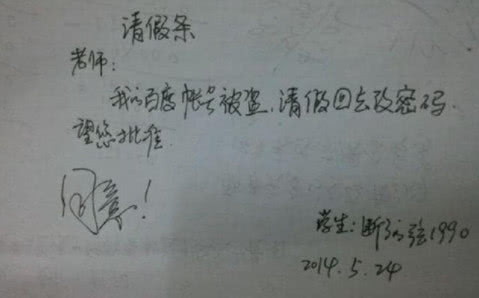 请假条
老师：
我的百度帐号被盗，请假回去改密码.
望您批准
同意！
学生：断的弦1990
2014.5.24